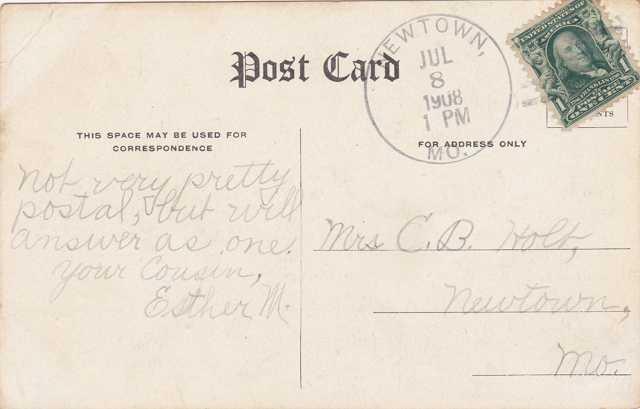 Post Card
NEWTOWN,
JUL
8
1908
1 PM
MO.
UNITED STATES OF
1 1
ONE CENT
THIS SPACE MAY BE USED FOR
CORRESPONDENCE
FOR ADDRESS ONLY
Not very pretty
postal, but will
answer as one.
Your Cousin,
Esther M.
Mrs C. B. Holt,
Newtown,
Mo.